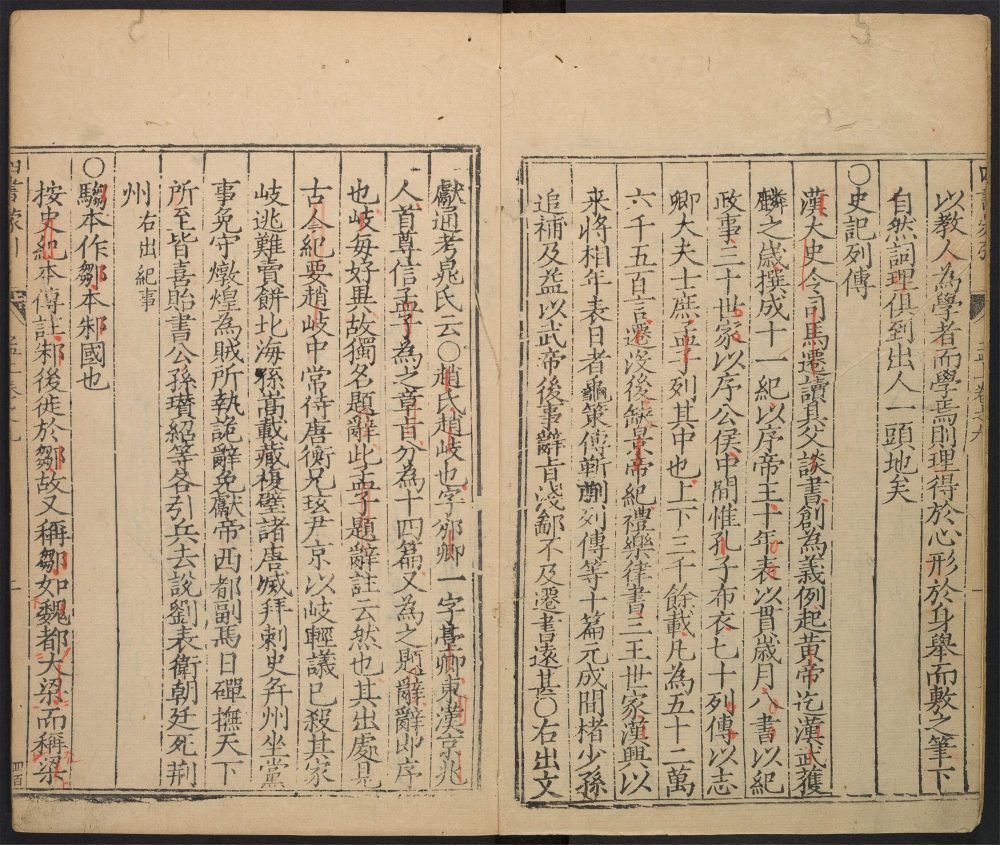 以教人為學者而學焉則理得於心形於身舉而敷之筆下
自然詞理俱到出人一頭地矣
○史記列傳
漢大史令司馬遷讀其父談書創為義例起黃帝迄漢武獲
麟之歲撰成十一紀以序帝王十年表以貫歲月八書以紀
政事三十世家以序公侯中間惟孔子布衣七十列傳以志
卿大夫士庶孟子列其中也上下三千餘載凡為五十二萬
六千五百言遷沒後缺景帝紀禮樂律書三王世家漢興以
來將相年表日者龜策傳靳蒯列傳等十篇元成間楮少孫
追補及益以武帝後事辭旨淺鄙不及遷書遠甚○右出文
獻通考晁氏云○趙氏趙岐也字邠卿一字臺卿東漢京兆
人首尊信孟子為之章旨分為十四篇又為之題辭辭即序
也岐每好異故獨名題辭此孟子題辭註云然也其出處見
古今紀要趙岐中常侍唐衡兄玹尹京以岐輕議已殺其家
岐逃難賣餅北海孫嵩載藏複壁諸唐滅拜刺史并州坐黨
事免守燉煌為賊所執詭辭免獻帝西都副馬日磾撫天下
所至皆喜貽書公孫瓚紹等各引兵去說劉表衛朝廷死荊
州 右出紀事
○騶本作鄒本邾國也
按史紀本傳註邾後徙於鄒故又稱鄒如魏都大梁而稱梁